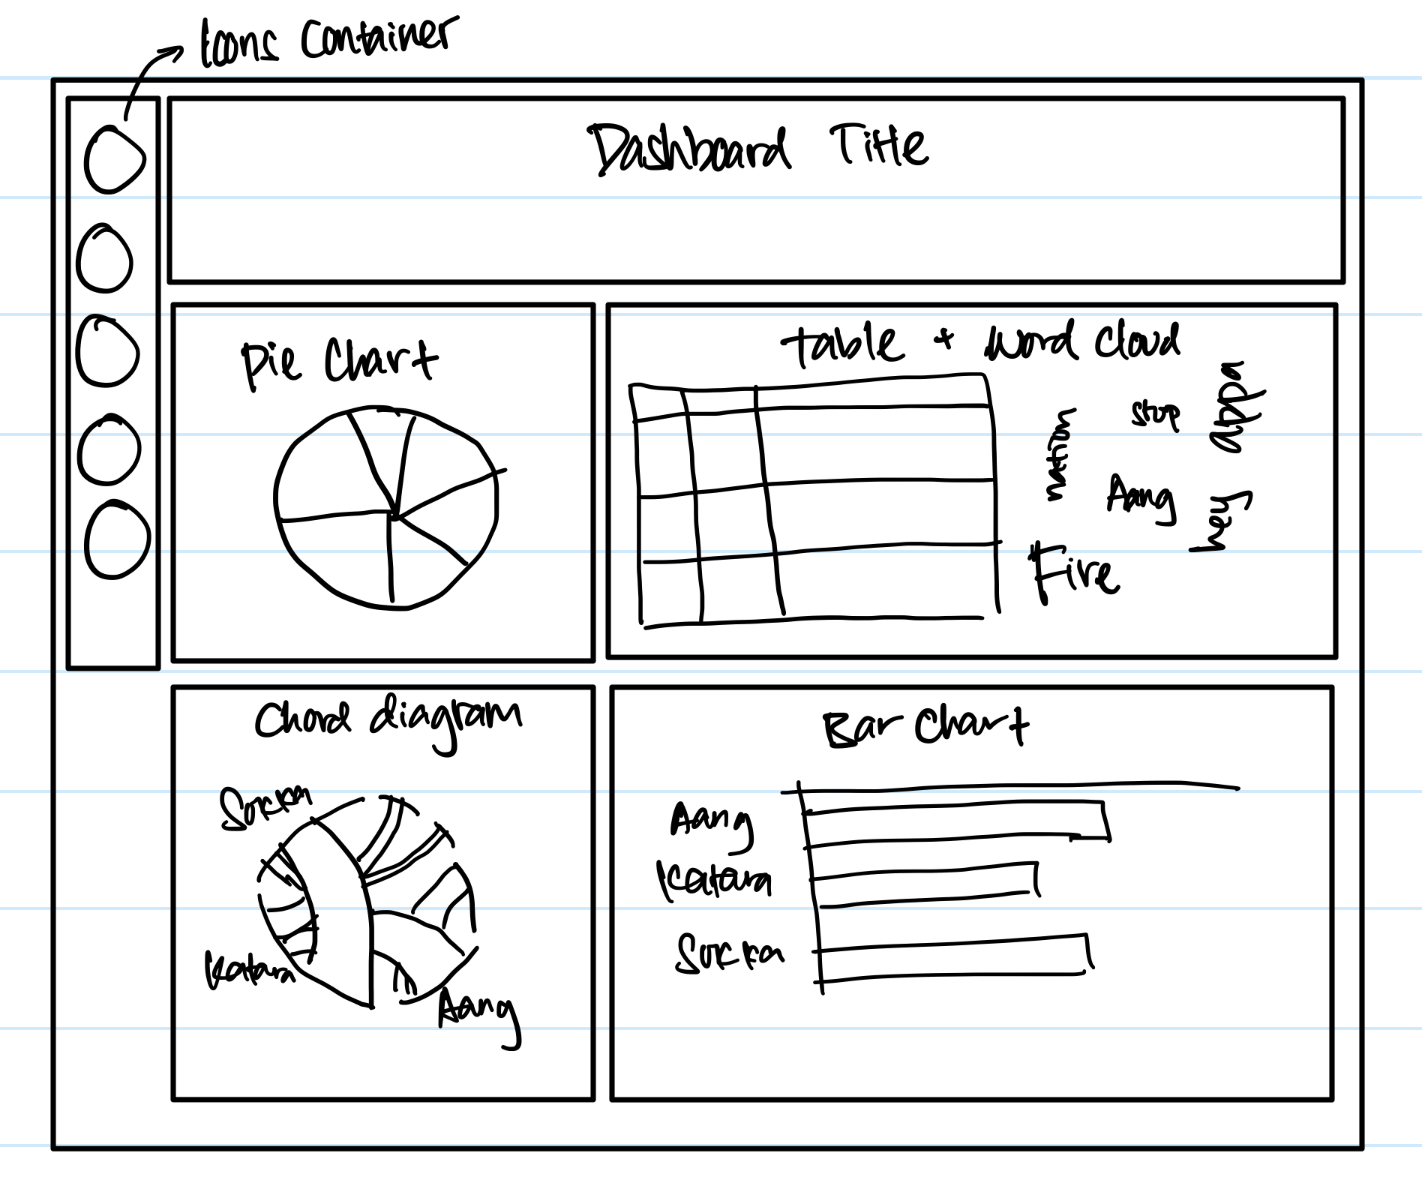 Icons Container
Dashboard Title
Pie Chart
table + Word Cloud
nation
stop
appa
Aang
hey
Fire
Chord diagram
Sokka
Katara
Aang
Bar Chart
Aang
Katara
Sokka